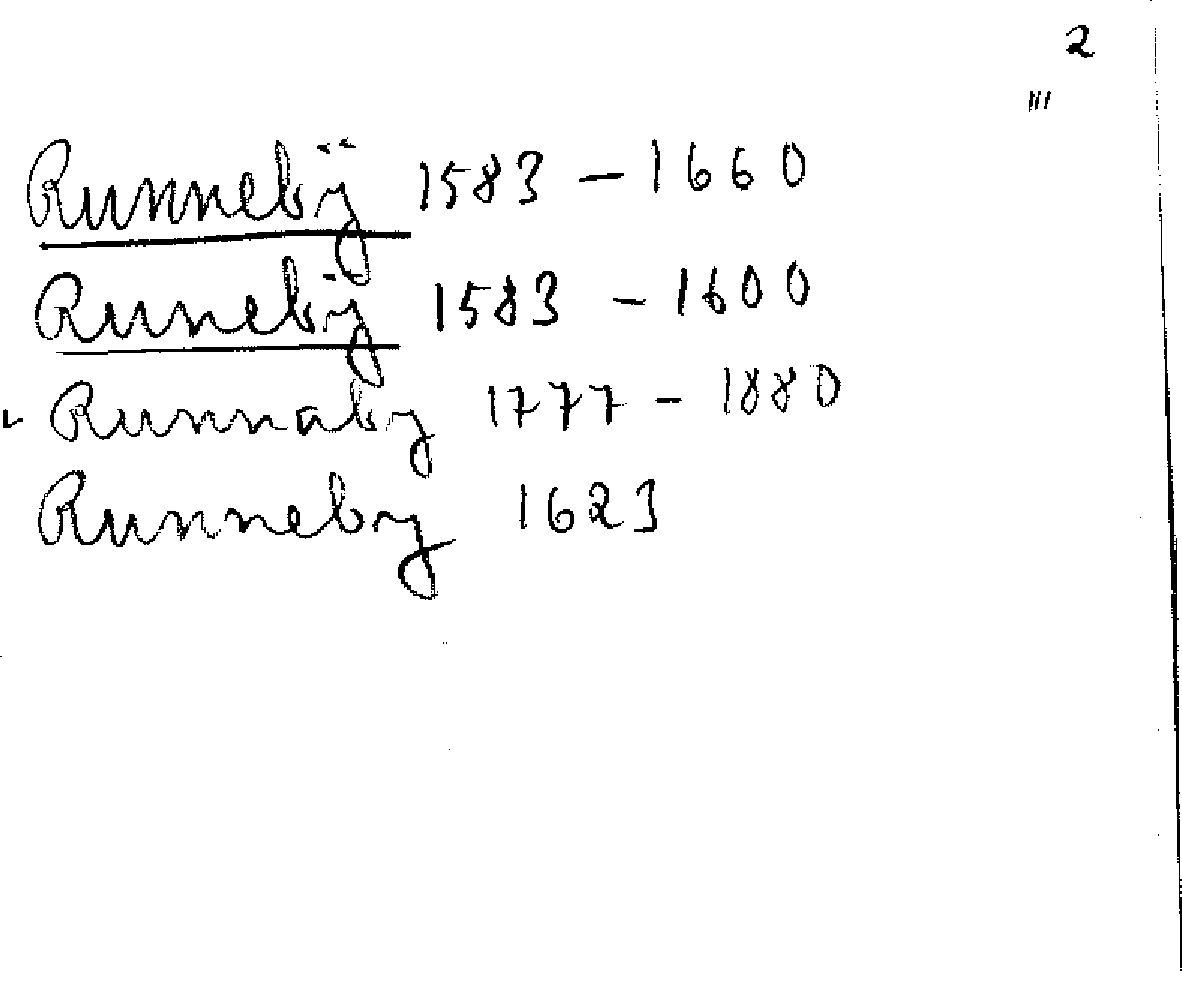 2
III
Runnebÿ 1583 – 1660
Runebÿ 1583 – 1600
Runnaby 1777 – 1880
Runneby 1623